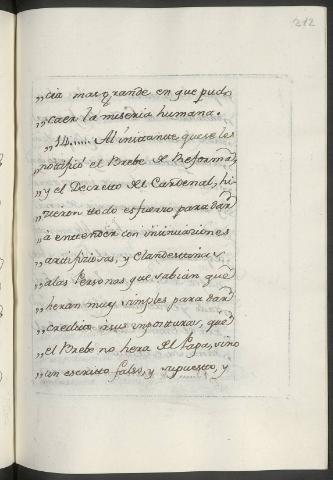 212
„cia mas grande en que pudo
„caer la miseria humana.
„14..... Al instante que se les
„notificó el Brebe de Reforma,
„y el Decreto del Cardenal, hi-
„cieron todo esfuerzo para dàr
„à entender con insinuaciones
„artifiziosas, y clandestinas
„alas Personas que sabian que
„heran muy simples para dàr
„credito asus imposturas, que
„el Brebe no hera del Papa, sino
„un escrito falso, y supuesto, y